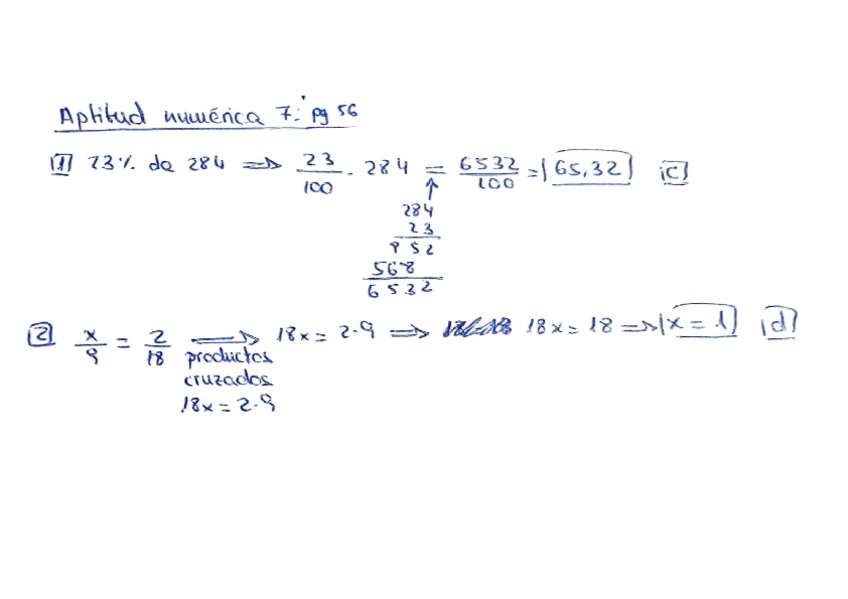 Aptitud numérica 7: pg 56
1) 23% de 284 ⇒ 23/100 · 284 = 6532/100 = 65,32 c)
284
23
852
568
6532
2) x/9 = 2/18 ⟹ 18x = 2·9 ⟹ 18x = 18 ⟹ x = 1 d)
productos
cruzados
18x = 2·9